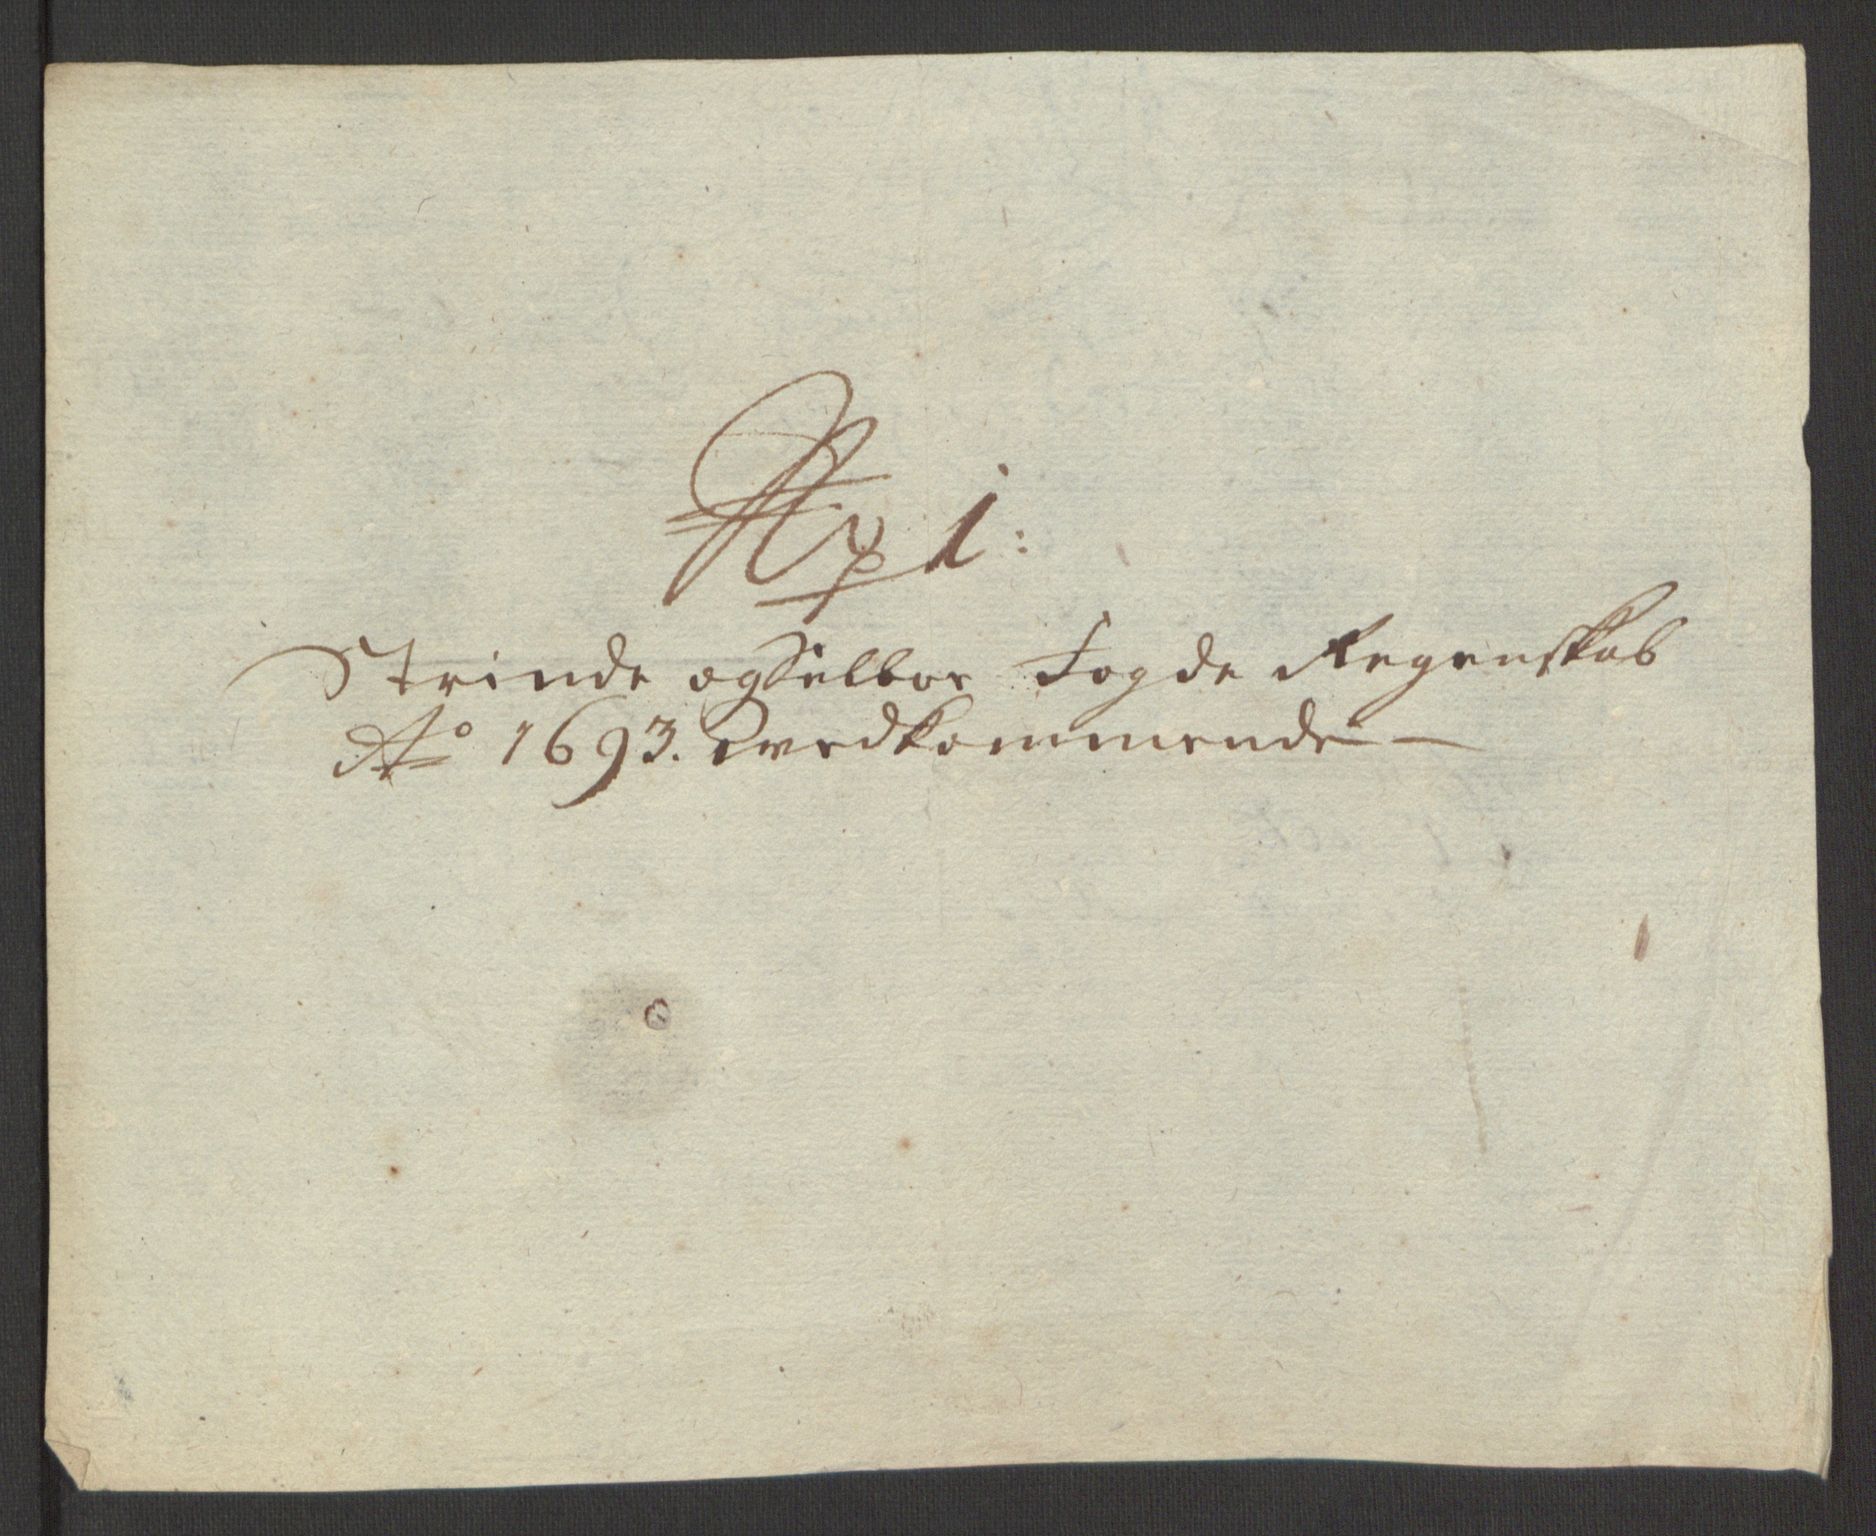 No 1:
Strinde og Selboe Fogde Regenskab
Ao 1693. vedkommende